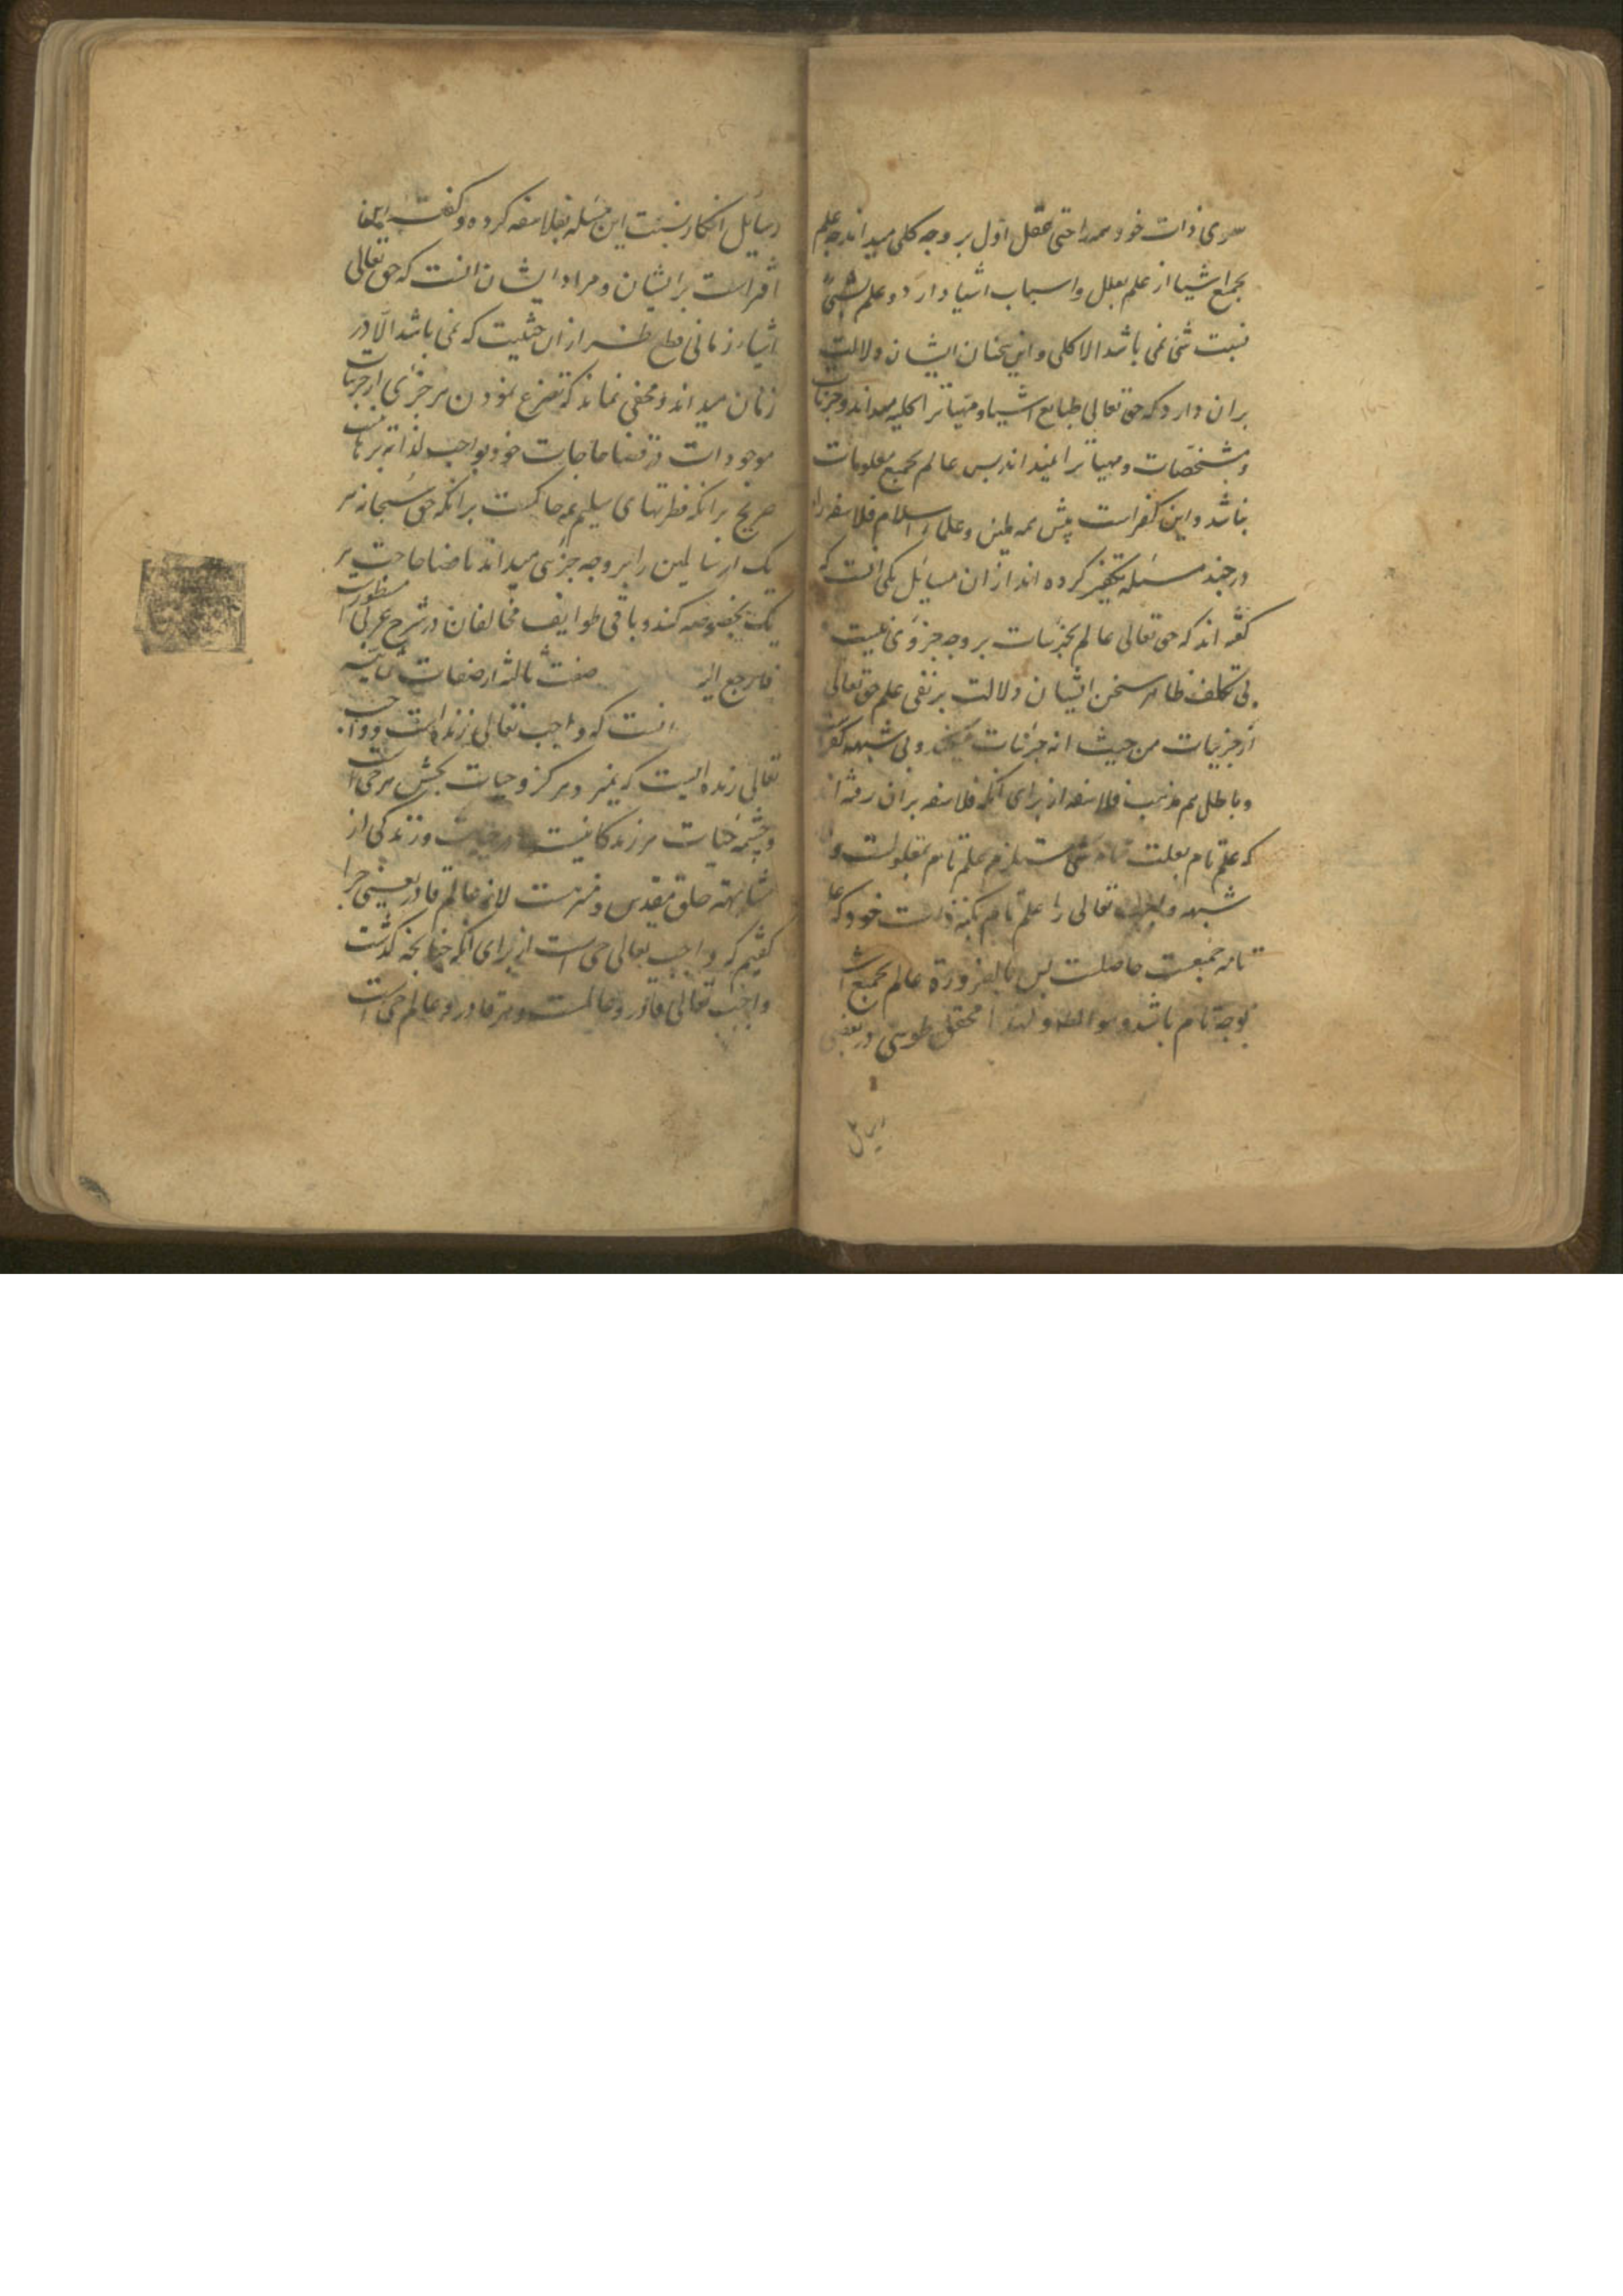 سوی ذات خود همه را حتی عقل اول بر وجه کلی میداند چه علم
بجمیع اشیا از علم بعلل و اسباب اشیا دارد و علم
نسبت شی نمی باشد الا کلی و این سخنان ایشان دلالت
بران دارد که حق تعالی طبایع اشیا و مهیات را کلیه میداند و جزئیات
و مشخصات و مهیات را نمیداند پس عالم بجمیع معلومات
نباشد و این کفر است پیش همه ملیین و علماء اسلام فلاسفه را
در چند مسئله تکفیر کرده اند از ان مسایل یکی انست که
گفته اند که حق تعالی عالم بجزئیات بر وجه جزوی نیست
بی تکلف ظاهر سخن ایشان دلالت بر نفی علم حق تعالی
از جزییات من حیث انه جزئیات میکند و بی شبهه کفر
و باطل هم مذهب فلاسفه از برای انکه فلاسفه بران رفته اند
که علم تام بعلت تامه شی مستلزم علم تام بمعلولست و
شبهه واجب تعالی را علم تام بکنه ذات خود که
تامه جمیعست حاصلست پس بالضرورة عالم بجمیع
بوجه تام باشد و هو المط و لهذا محقق طوسی در بعضی
رسایل
رسایل انکار نسبت این مسئله بفلاسفه کرده و گفته
افتراست بر ایشان و مراد ایشان انست که حق تعالی
اشیاء زمانی قطع نظر از ان حیثیت که نمی باشد الا در
زمان میداند و مخفی نماند که تضرع نمودن هر جزئی از جزئیات
موجودات در قضا حاجات خود بواجب لذاته برهانیست
صریح بر انکه فطرتهای سلیمه حاکمست بر انکه حق سبحانه هر
یک از سایلین را بر وجه جزئی میداند تا قضا حاجت هر
یک بخصوصه کند و باقی طوایف مخالفان در شرح عربی مسطورست
فارجع الیه صفت ثالثه از صفات ثمانیه
انست که واجب تعالی زنده است و واجب
تعالی زنده ایست که نمیرد هرگز و حیات بخش هر حی است
و چشمه حیات هر زندگانیست در حیات و زندگی از
مشابهته خلق مقدس و منزهست لانه عالم قادر یعنی چرا
گفتیم که واجب تعالی حی است از برای انکه چنانچه گذشت
واجب تعالی قادر و عالمست و هر قادر و عالم حی است